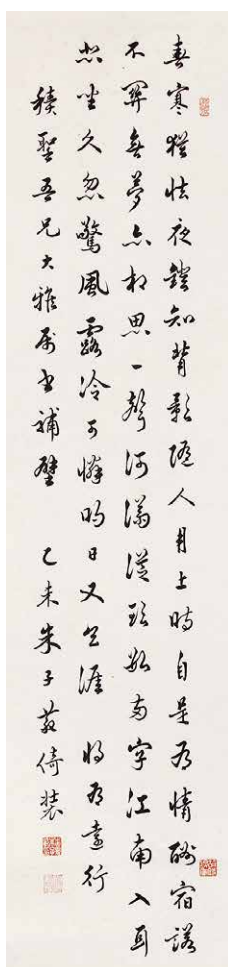 春寒猶怯夜鐙知背影隨人月上時自是有情酬宿諾
不關無夢亦相思一聲河滿從頭數兩字江南入耳
悲坐久忽驚風露冷可憐明日又天涯 將有遠行
聖吾兄大雅屬書補壁 乙未朱子倚裝